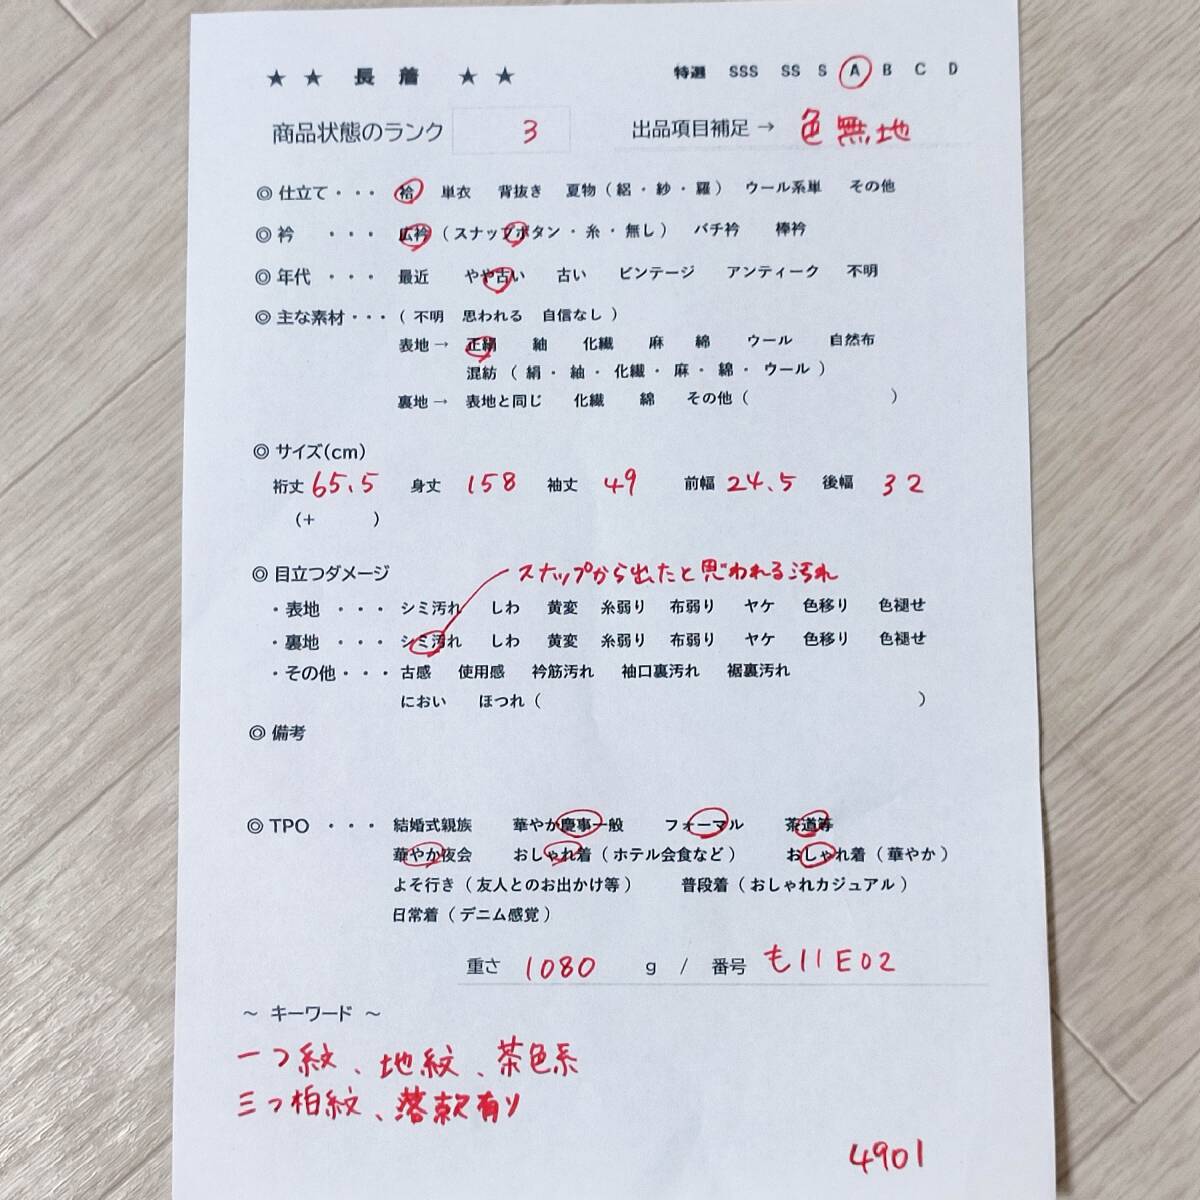 ★ ★ 長 着 ★ ★ 特選 SSS SS S A B C D
商品状態のランク 3 出品項目補足 → 色無地
◎ 仕立て ・・・ 袷 単衣 背抜き 夏物（絽・紗・羅） ウール系単 その他
◎ 衿 ・・・ 広衿（スナップボタン・糸・無し） バチ衿 棒衿
◎ 年代 ・・・ 最近 やや古い 古い ビンテージ アンティーク 不明
◎ 主な素材・・・（不明 思われる 自信なし）
表地 → 正絹 紬 化繊 麻 綿 ウール 自然布
混紡（絹・紬・化繊・麻・綿・ウール）
裏地 → 表地と同じ 化繊 綿 その他（ ）
◎ サイズ(cm)
裄丈 65.5 身丈 158 袖丈 49 前幅 24.5 後幅 32
（+ ）
◎ 目立つダメージ スナップから出たと思われる汚れ
・表地 ・・・ シミ汚れ しわ 黄変 糸弱り 布弱り ヤケ 色移り 色褪せ
・裏地 ・・・ シミ汚れ しわ 黄変 糸弱り 布弱り ヤケ 色移り 色褪せ
・その他・・・ 古感 使用感 衿筋汚れ 袖口裏汚れ 裾裏汚れ
におい ほつれ（ ）
◎ 備考
◎ TPO ・・・ 結婚式親族 華やか慶事一般 フォーマル 茶道等
華やか夜会 おしゃれ着（ホテル会食など） おしゃれ着（華やか）
よそ行き（友人とのお出かけ等） 普段着（おしゃれカジュアル）
日常着（デニム感覚）
重さ 1080 g / 番号 も11E02
～ キーワード ～
一つ紋、地紋、茶色系
三つ柏紋、落款有り
4901